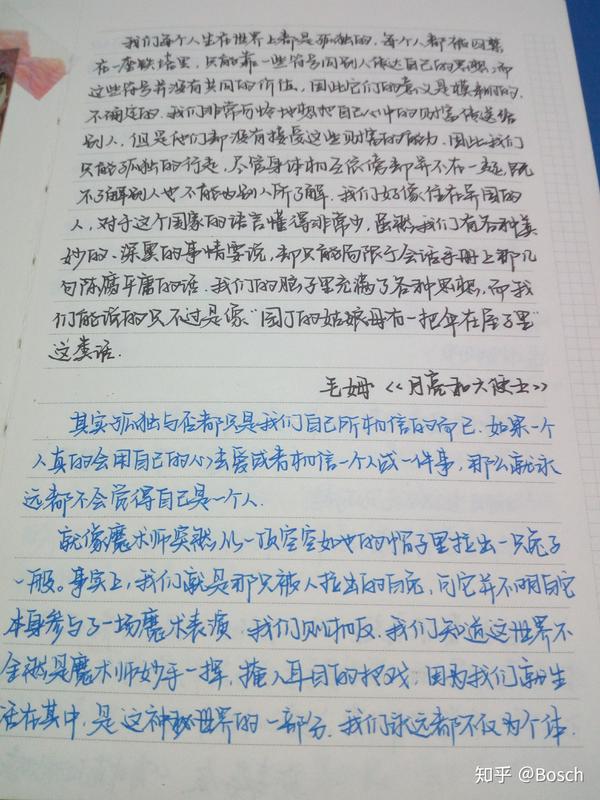 我们每个人生在世界上都是孤独的.每个人都被囚禁
在一座铁塔里,只能靠一些符号同别人传达自己的思想,而
这些符号并没有共同的价值,因此它们的意义是模糊的.
不确定的.我们非常可怜地想把自己心中的财富传送给
别人,但是他们却没有接受这些财富的能力.因此我们
只能孤独的行走,尽管身体相互依傍却并不在一起,既
不了解别人也不能为别人所了解.我们好像住在异国的
人,对于这个国家的语言懂得非常少,虽然我们有各种美
妙的、深奥的事情要说,却只能局限于会话手册上那几
句陈腐平庸的话.我们的脑子里充满了各种思想,而我
们能说的只不过是像“园丁的姑娘母有一把伞在屋子里”
这类话.
毛姆《月亮和六便士》
其实孤独与否都只是我们自己所相信的而已.如果一个
人真的会用自己的心去爱或者相信一个人或一件事,那么就永
远都不会觉得自己是一个人.
就像魔术师突然从一顶空空如也的帽子里拉出一只兔子
一般。事实上,我们就是那只被人拉出的白兔,可它并不明白它
本身参与了一场魔术表演.我们则相反.我们知道这世界不
全然是魔术师妙手一挥,掩人耳目的把戏,因为我们就生
活在其中,是这神秘世界的一部分.我们永远都不仅为个体.
知乎 @Bosch